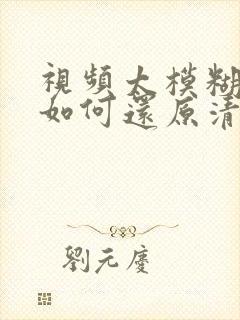 視頻太模糊
如何還原清
劉元慶